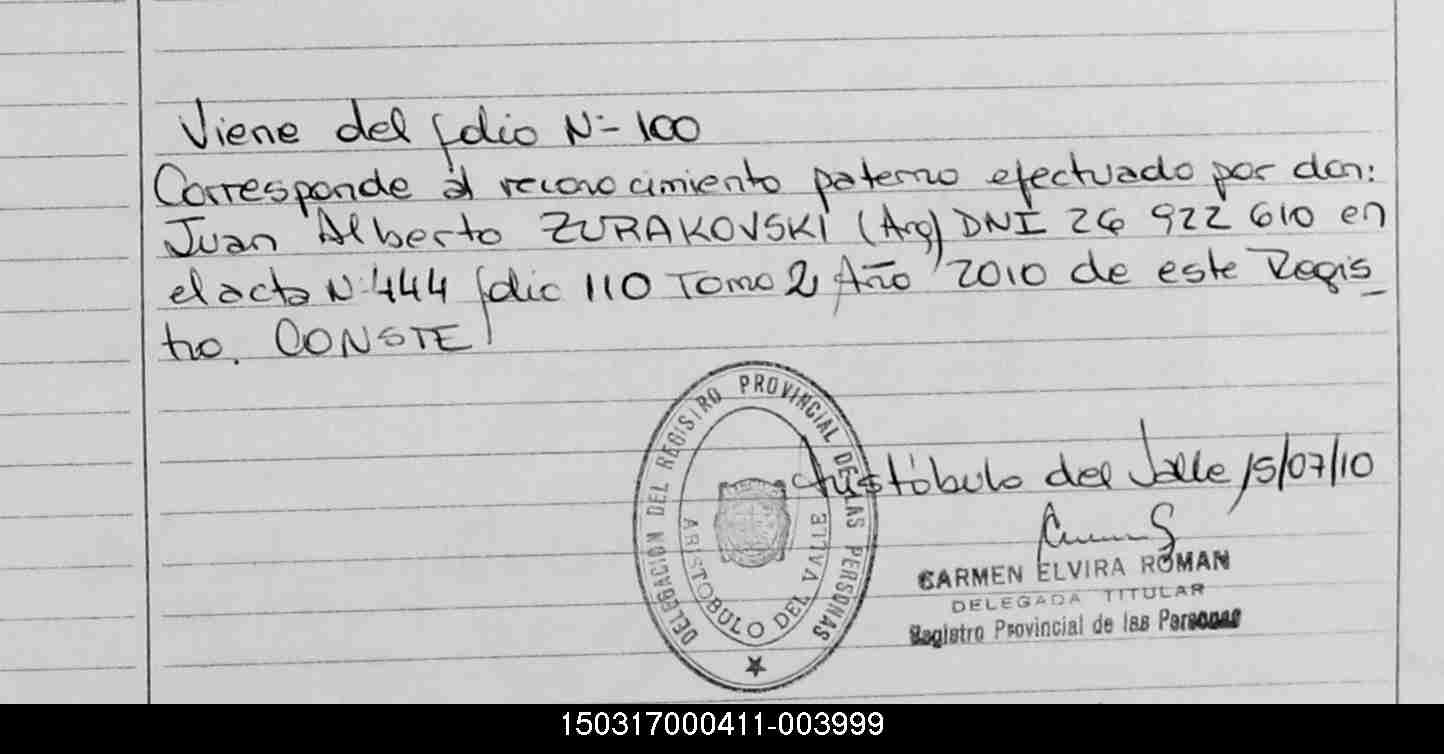 Viene del folio N:- 100
Corresponde al reconocimiento paterno efectuado por don:
Juan Alberto ZURAKOVSKI (Arg) DNI 26 922 610 en
el acta N: 444 folio 110 Tomo 2 Año 2010 de este Regis_
tro. CONSTE
DELEGACION DEL REGISTRO PROVINCIAL DE LAS PERSONAS
ARISTOBULO DEL VALLE
Aristóbulo del Valle 15/07/10
CARMEN ELVIRA ROMAN
DELEGADA TITULAR
Registro Provincial de las Personas
150317000411-003999